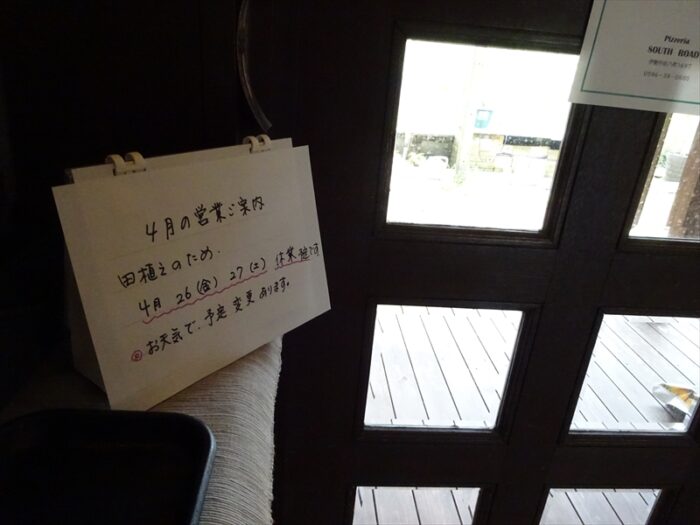 4月の営業ご案内
田植えのため.
4月 26(金) 27(土) 休業です
お天気で、予定変更あります。
Pizzeria
SOUTH ROAD